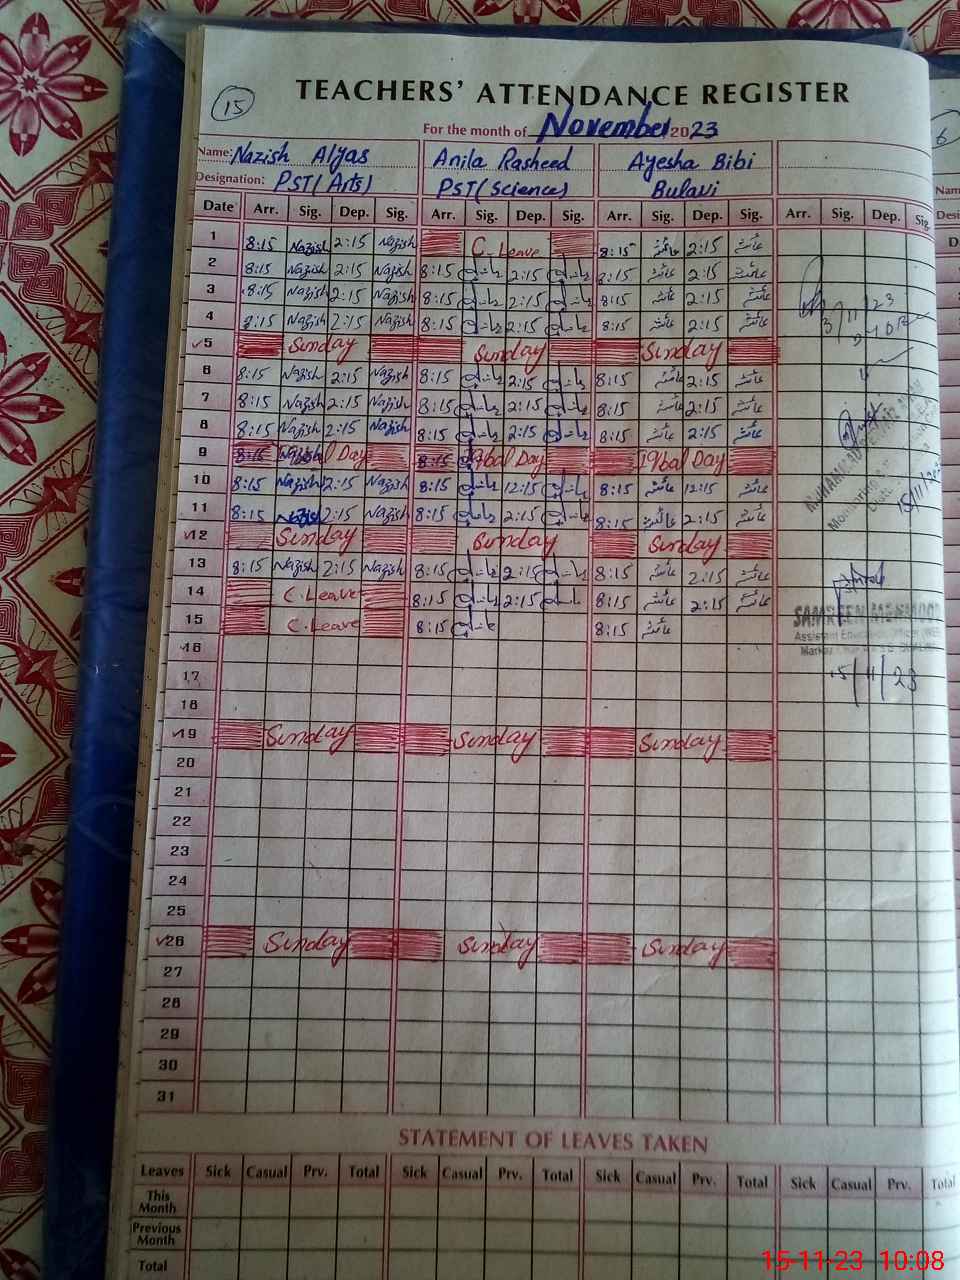 15
TEACHERS' ATTENDANCE REGISTER
For the month of November 2023
Name: Nazish Alyas Anila Rasheed Ayesha Bibi
Designation: PST(Arts) PST(Science) Bulavi
Date Arr. Sig. Dep. Sig. Arr. Sig. Dep. Sig. Arr. Sig. Dep. Sig. Arr. Sig. Dep. Sig.
1 8:15 Nazish 2:15 Nazish C. Leave 8:15 عائشہ 2:15 عائشہ
2 8:15 Nazish 2:15 Nazish 8:15 2:15 8:15 عائشہ 2:15 عائشہ
3 8:15 Nazish 2:15 Nazish 8:15 2:15 8:15 عائشہ 2:15 عائشہ
4 8:15 Nazish 2:15 Nazish 8:15 2:15 8:15 عائشہ 2:15 عائشہ
5 Sunday Sunday Sunday
6 8:15 Nazish 2:15 Nazish 8:15 2:15 8:15 عائشہ 2:15 عائشہ
7 8:15 Nazish 2:15 Nazish 8:15 2:15 8:15 عائشہ 2:15 عائشہ
8 8:15 Nazish 2:15 Nazish 8:15 2:15 8:15 عائشہ 2:15 عائشہ
9 8:15 Day 8:15 Iqbal Day Iqbal Day
10 8:15 Nazish 2:15 Nazish 8:15 12:15 8:15 عائشہ 12:15 عائشہ
11 8:15 Nazish 2:15 Nazish 8:15 2:15 8:15 عائشہ 2:15 عائشہ
12 Sunday Sunday Sunday
13 8:15 Nazish 2:15 Nazish 8:15 2:15 8:15 عائشہ 2:15 عائشہ
14 C. Leave 8:15 2:15 8:15 عائشہ 2:15 عائشہ
15 C. Leave 8:15 8:15 عائشہ
16
17
18
19 Sunday Sunday Sunday
20
21
22
23
24
25
26 Sunday Sunday Sunday
27
28
29
30
31
3/11/23
15/11/23
SAMREEN MEHMOOD
Assistant Education Officer
15/11/23
STATEMENT OF LEAVES TAKEN
Leaves Sick Casual Prv. Total Sick Casual Prv. Total Sick Casual Prv. Total Sick Casual Prv. Total
This Month
Previous Month
Total
15-11-23 10:08